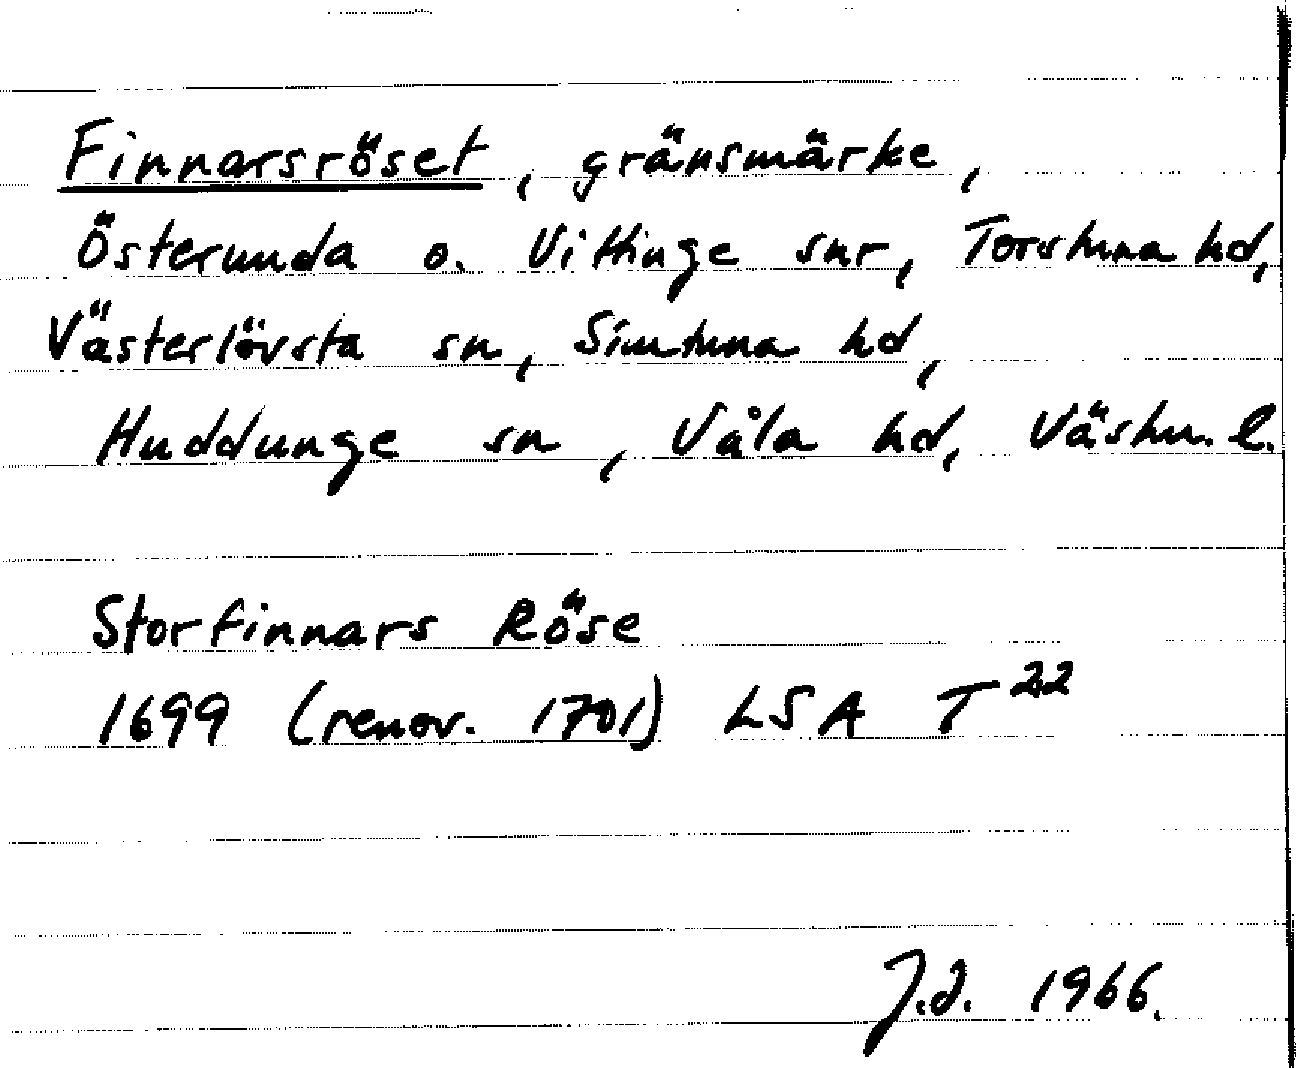 Finnarsröset, gränsmärke,
Österunda o. Vittinge snr, Torstuna hd,
Västerlövsta sn, Simtuna hd,
Huddunge sn, Våla hd, Västm. l.
Storfinnars Röse
1699 (renov. 1701) LSA T 22
J.d. 1966.